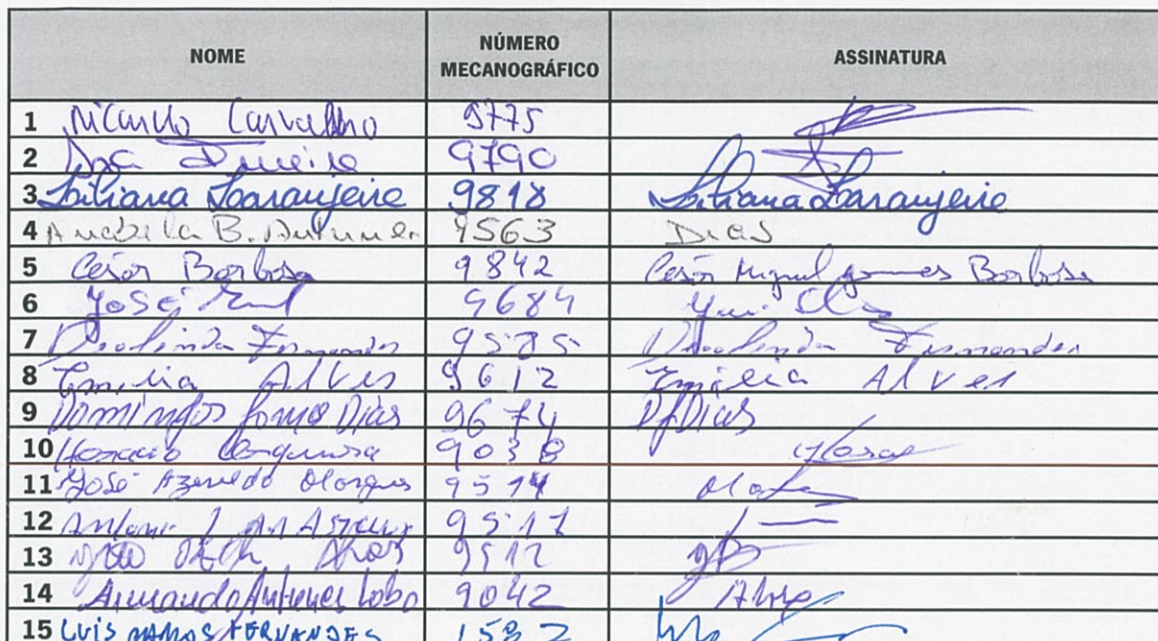 NOME NÚMERO MECANOGRÁFICO ASSINATURA
1 Ricardo Carvalho 9775
2 9790
3 Liliana Laranjeira 9818 Liliana Laranjeira
4 Anabela B. Antunes 9563 Dias
5 César Barbosa 9842 César Miguel Gomes Barbosa
6 José 9684
7 Deolinda Fernandes 9585 Deolinda Fernandes
8 Emilia Alves 9612 Emilia Alves
9 Domingos Gomes Dias 9674 DGDias
10 Horacio Cerqueira 9038
11 José Azevedo Marques 9514
12 9517
13 João 9512
14 Armando Antunes Lobo 9042
15 LUIS RAMOS FERNANDES